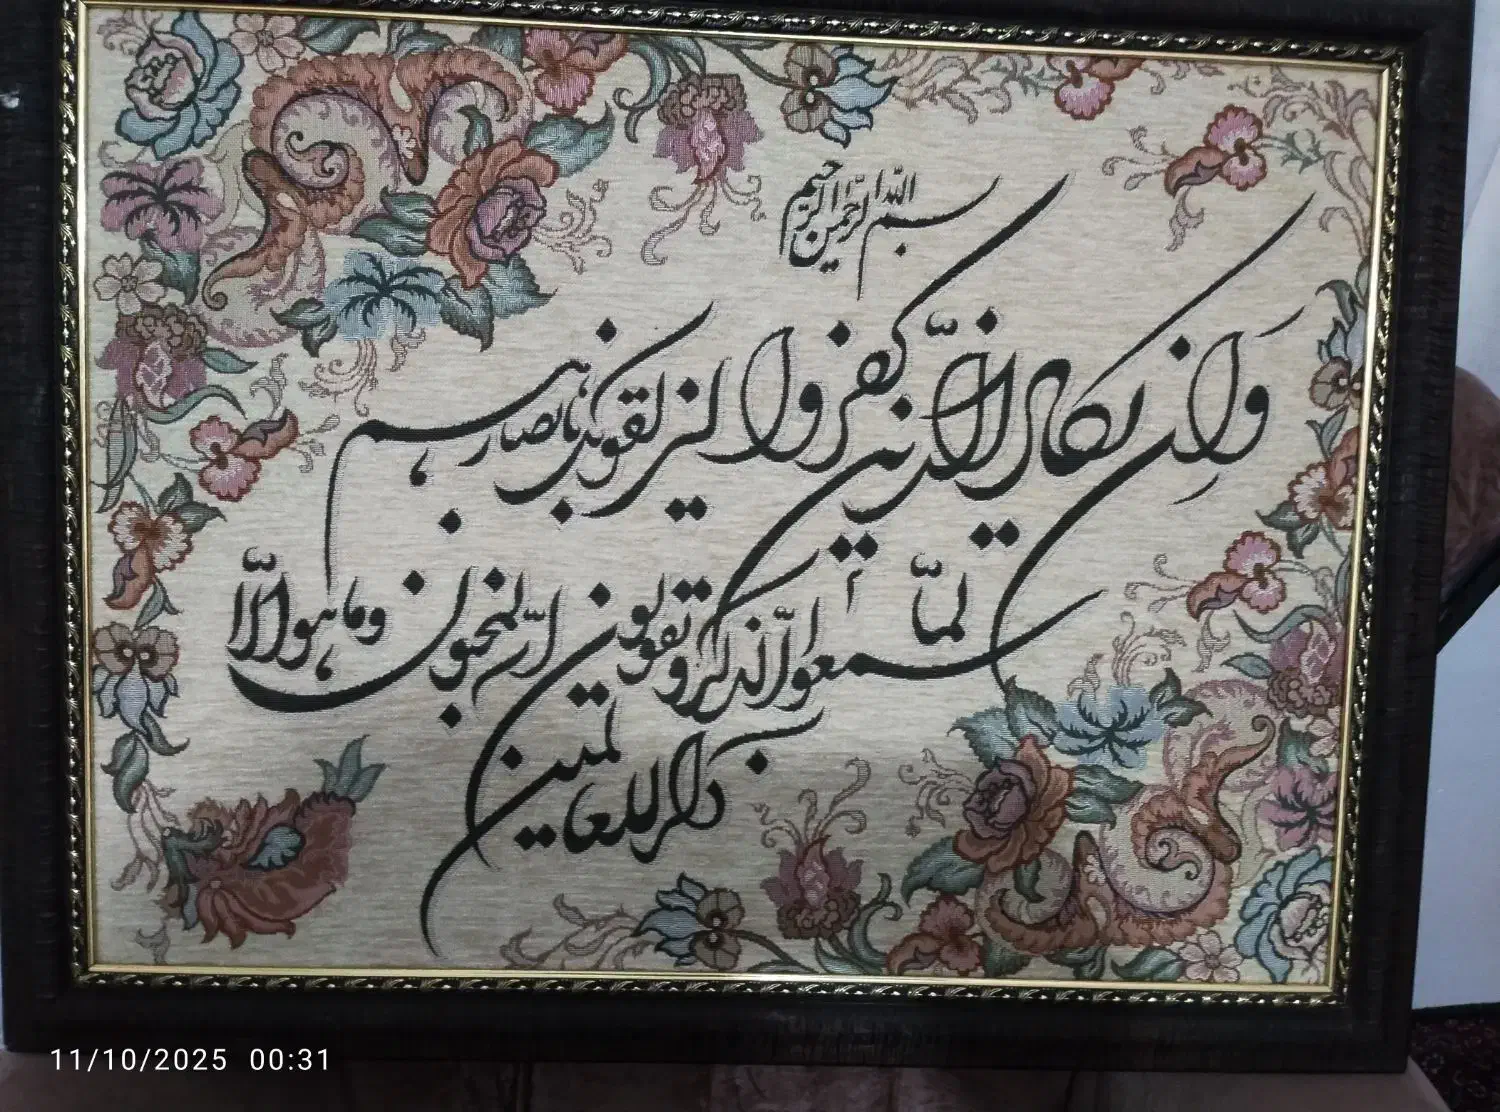 بسم الله الرحمن الرحیم
وَاِن یکاد الّذین کفروا لیزلقونک بابصارهم
لمّا سمعوا الذّکر و یقولون انّه لمجنون وما هو الّا
ذکر للعالمین
11/10/2025 00:31